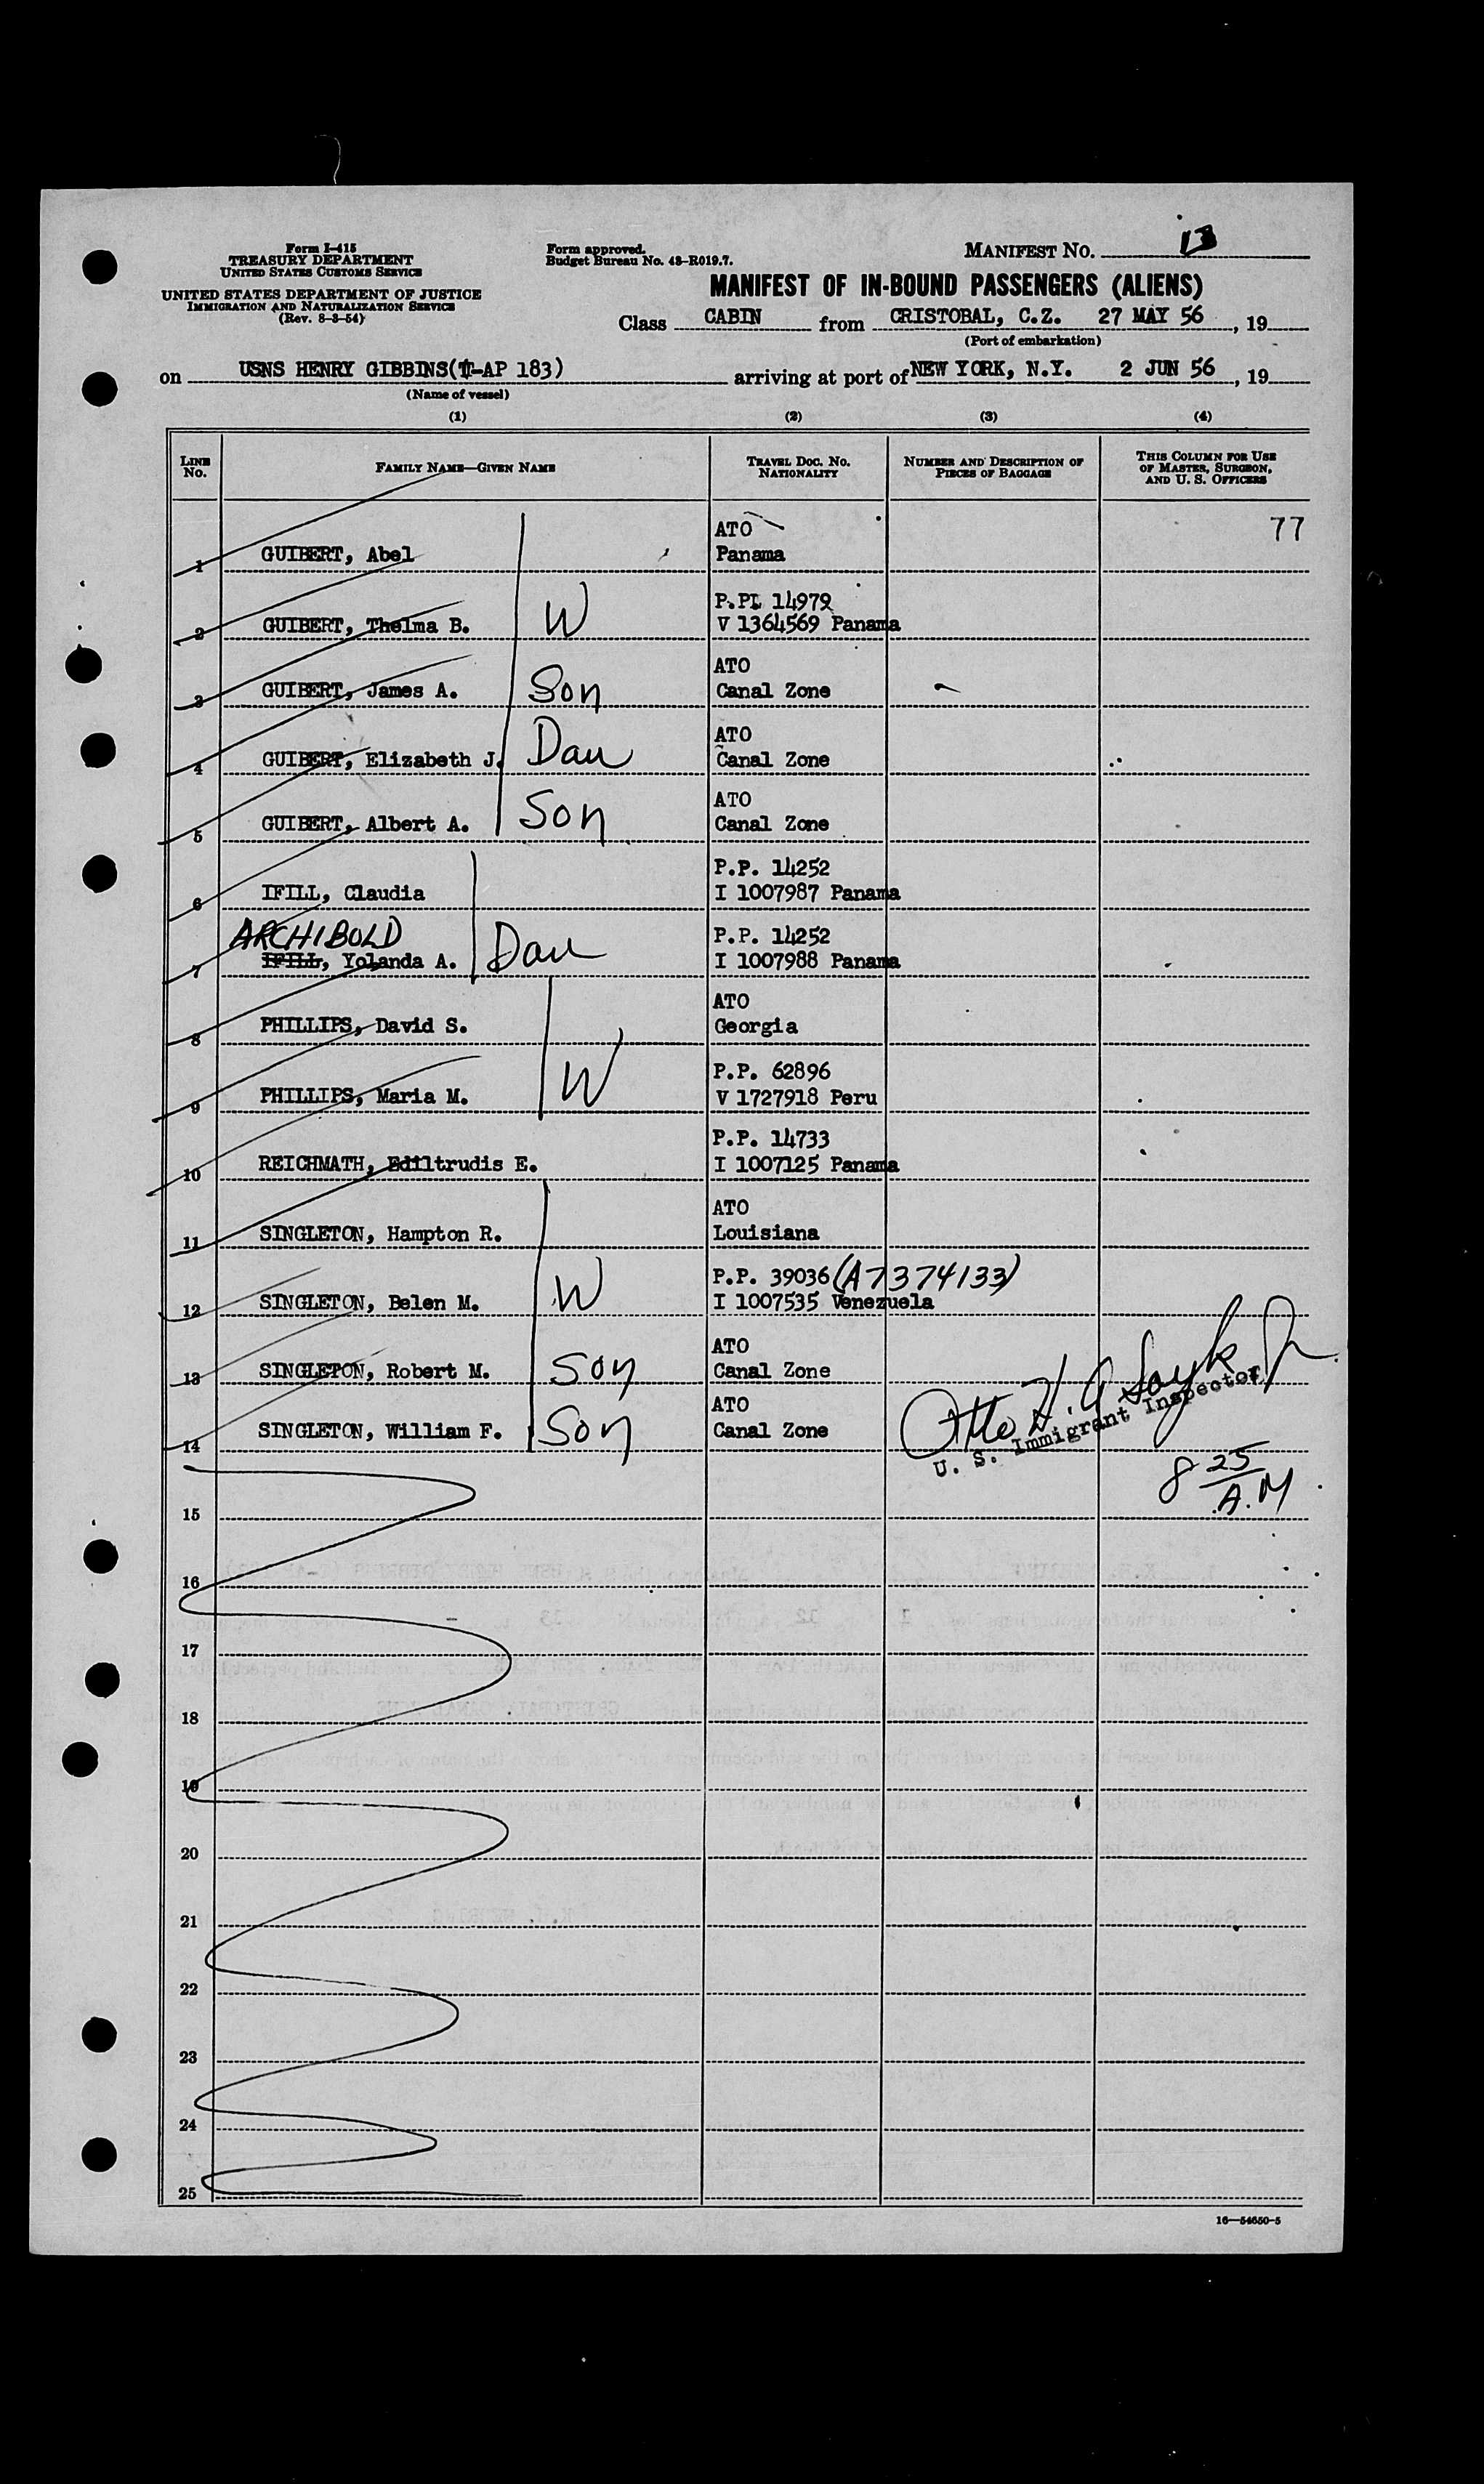 Form I-415
TREASURY DEPARTMENT
UNITED STATES CUSTOMS SERVICE
UNITED STATES DEPARTMENT OF JUSTICE
IMMIGRATION AND NATURALIZATION SERVICE
(Rev. 8-3-54)
Form approved.
Budget Bureau No. 43-R019.7.
MANIFEST NO. 13
MANIFEST OF IN-BOUND PASSENGERS (ALIENS)
Class CABIN from CRISTOBAL, C.Z. 27 MAY 56, 19
(Port of embarkation)
on USNS HENRY GIBBINS(T-AP 183) arriving at port of NEW YORK, N.Y. 2 JUN 56, 19
(Name of vessel)
(1) (2) (3) (4)
LINE No. FAMILY NAME—GIVEN NAME TRAVEL DOC. NO. NATIONALITY NUMBER AND DESCRIPTION OF PIECES OF BAGGAGE THIS COLUMN FOR USE OF MASTER, SURGEON, AND U. S. OFFICERS
ATO 77
1 GUIBERT, Abel Panama
P.PI 14979
2 GUIBERT, Thelma B. W V 1364569 Panama
ATO
3 GUIBERT, James A. Son Canal Zone
ATO
4 GUIBERT, Elizabeth J. Dau Canal Zone
ATO
5 GUIBERT, Albert A. Son Canal Zone
P.P. 14252
6 IFILL, Claudia I 1007987 Panama
ARCHIBOLD P.P. 14252
7 IFILL, Yolanda A. Dau I 1007988 Panama
ATO
8 PHILLIPS, David S. Georgia
P.P. 62896
9 PHILLIPS, Maria M. W V 1727918 Peru
P.P. 14733
10 REICHMATH, Ediltrudis E. I 1007125 Panama
ATO
11 SINGLETON, Hampton R. Louisiana
P.P. 39036 (A7374133)
12 SINGLETON, Belen M. W I 1007535 Venezuela
ATO
13 SINGLETON, Robert M. Son Canal Zone
ATO
14 SINGLETON, William F. Son Canal Zone
Otto H.
U. S. Immigrant Inspector
8 25
A.M
15
16
17
18
19
20
21
22
23
24
25
16—54650-5